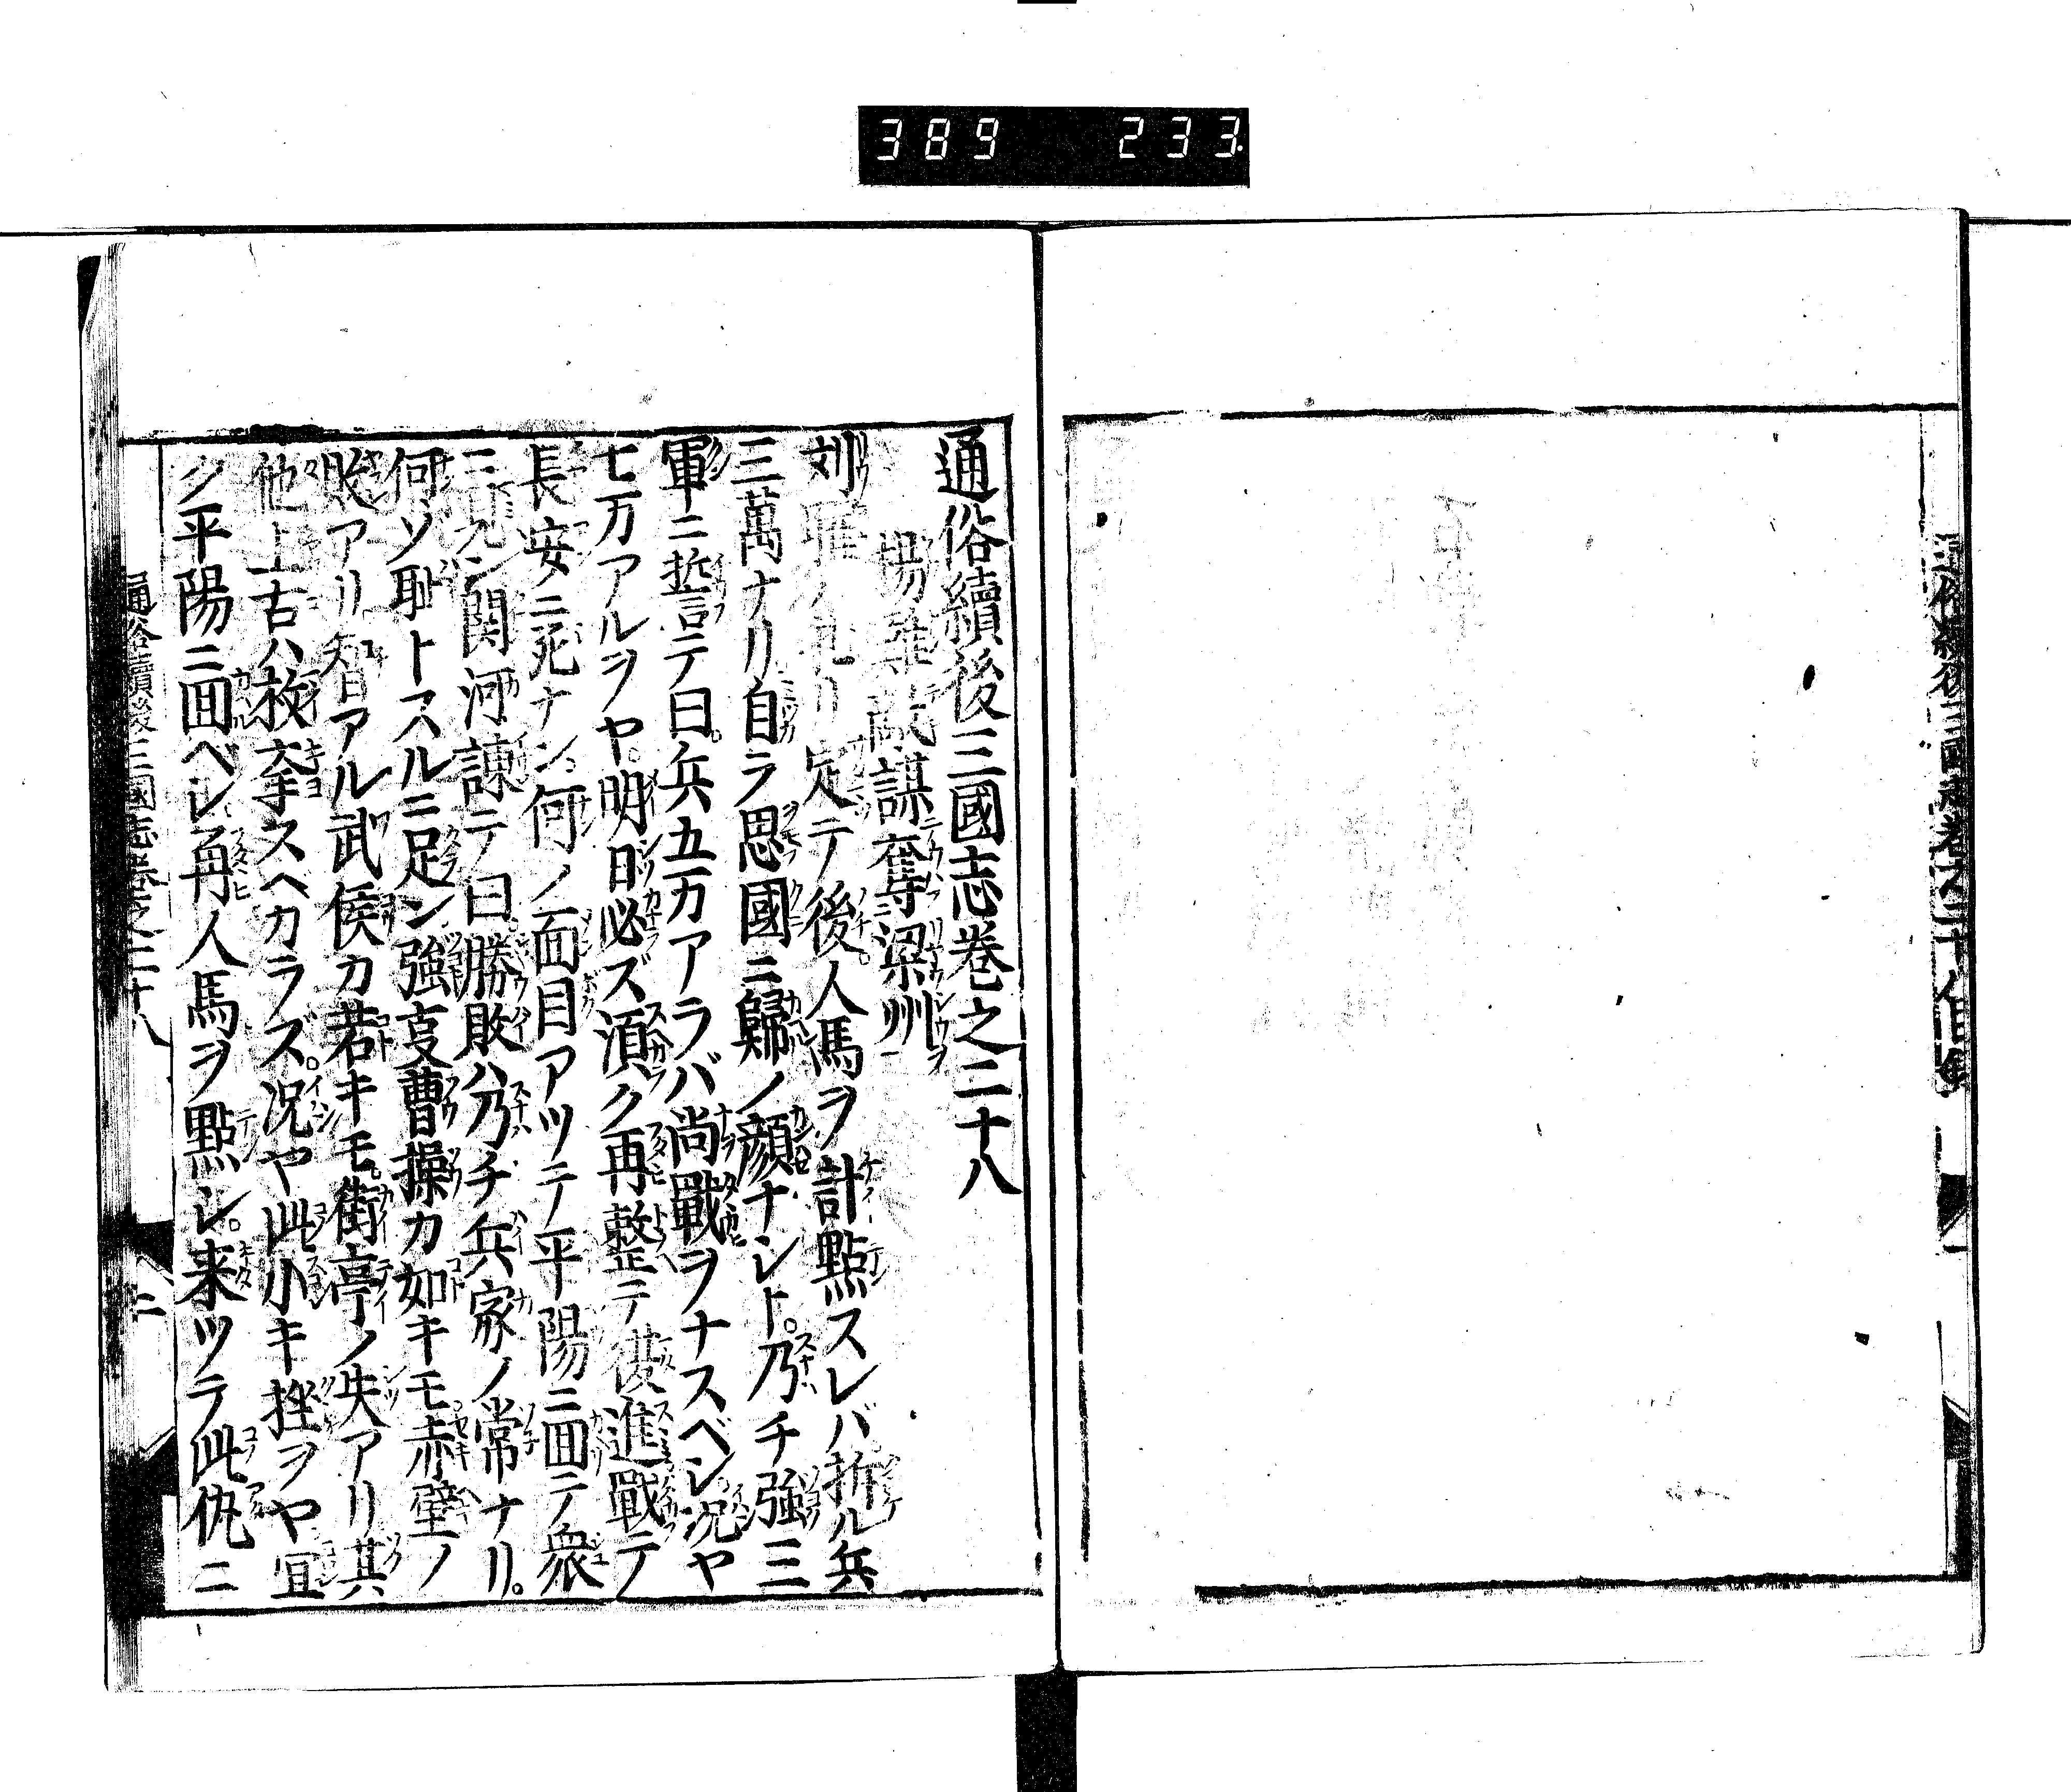 389 233
通俗續後三國志巻之二十八
楊難敵謀奪梁州
刘 定テ後人馬ヲ計點スレバ折ル兵
三萬ナリ自ラ思國ニ歸ノ顔ナシト乃チ強三
軍ニ誓テ曰兵五万アラバ尚戰ヲナスベシ況ヤ
七万アルヲヤ明日必ズ須ク再整テ 進戰テ
長安ニ死ナン何ノ面目アツテ平陽ニ回テ衆
ン関河諫テ曰勝敗ハ乃チ兵家ノ常ナリ
何ゾ耻トスルニ足ン強㕝曹操カ如キモ赤壁ノ
敗アリ智アル武侯カ若キモ街亭ノ失アリ其
他上古ハ枚挙スヘカラズ況ヤ此小キ挫ヲヤ宜
ク平陽ニ回ベシ再人馬ヲ點シ来ツテ此仇ニ
通俗續後三國志巻之二十八
二